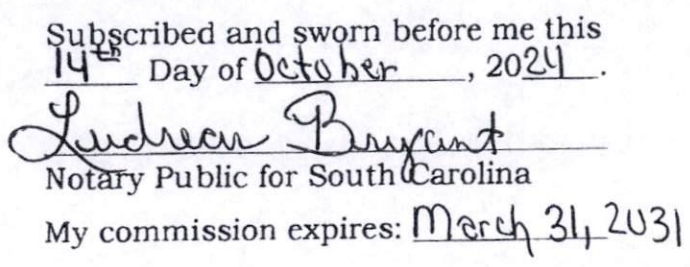 Subscribed and sworn before me this
14th Day of October, 2024.
Bryant
Notary Public for South Carolina
My commission expires: March 31, 2031